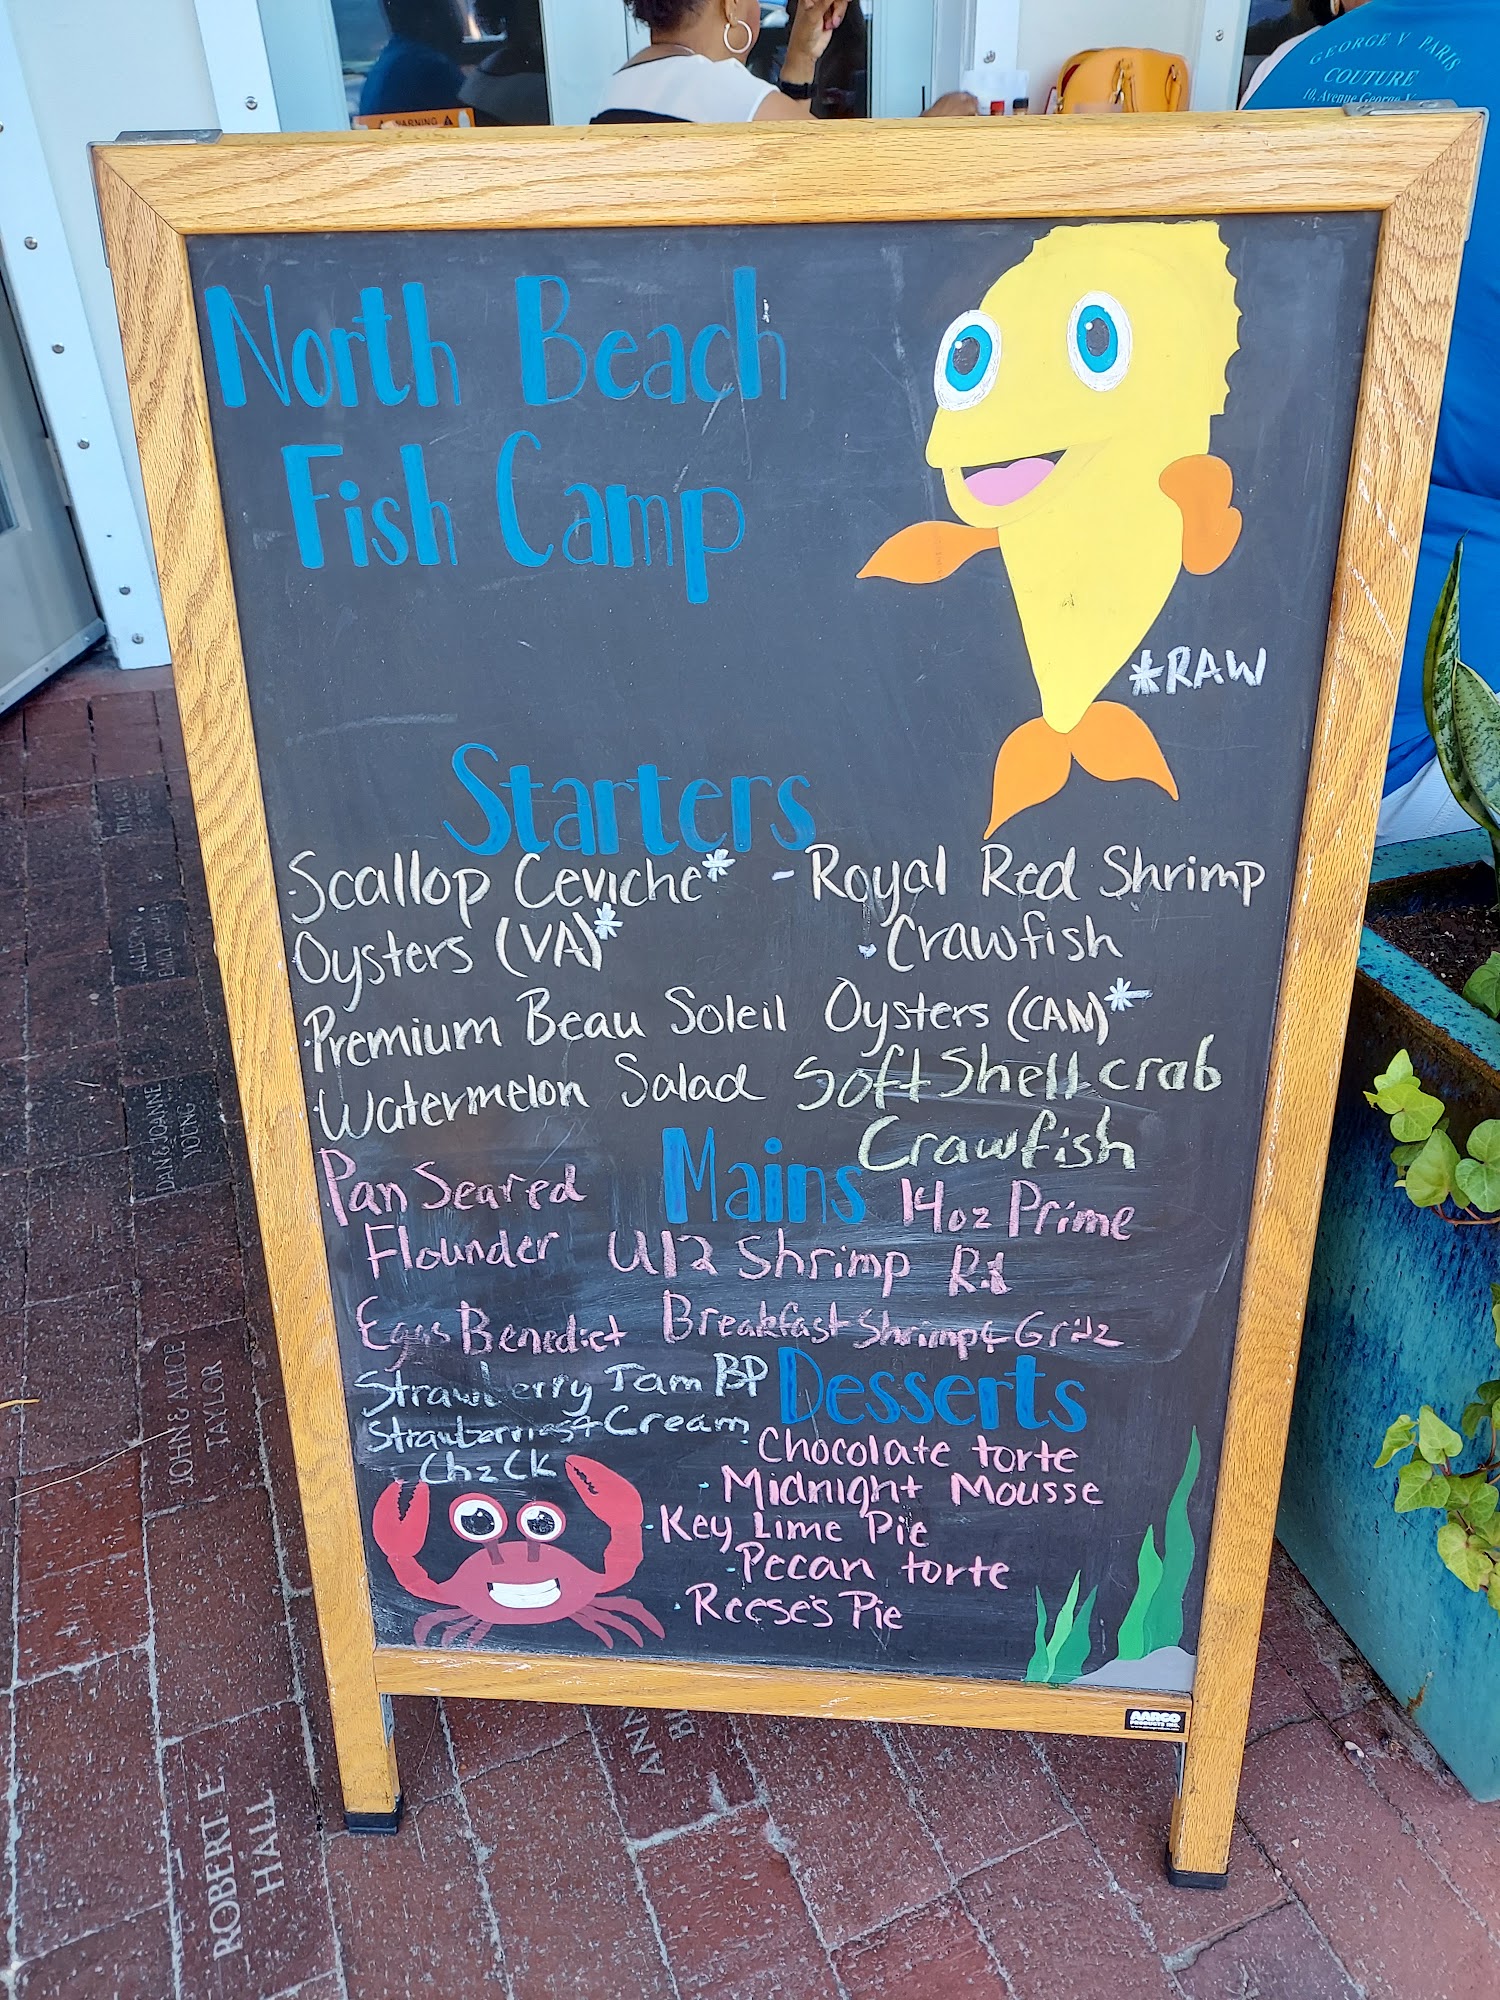 GEORGE V PARIS
COUTURE
10, Avenue George V
WARNING
North Beach
Fish Camp
*RAW
Starters
Scallop Ceviche* - Royal Red Shrimp
Oysters (VA)* · Crawfish
Premium Beau Soleil Oysters (CAN)*
Watermelon Salad Soft Shell crab
Crawfish
Mains
Pan Seared 14oz Prime
Flounder U12 Shrimp
Eggs Benedict Breakfast Shrimp & Gritz
Strawberry Jam BP
Desserts
Strawberries + Cream
ChzCk
Chocolate torte
· Midnight Mousse
- Key Lime Pie
- Pecan torte
· Reese's Pie
AARCO
PRODUCTS INC.
DAN & JOANNE
YOUNG
JOHN & ALICE
TAYLOR
ROBERT E.
HALL